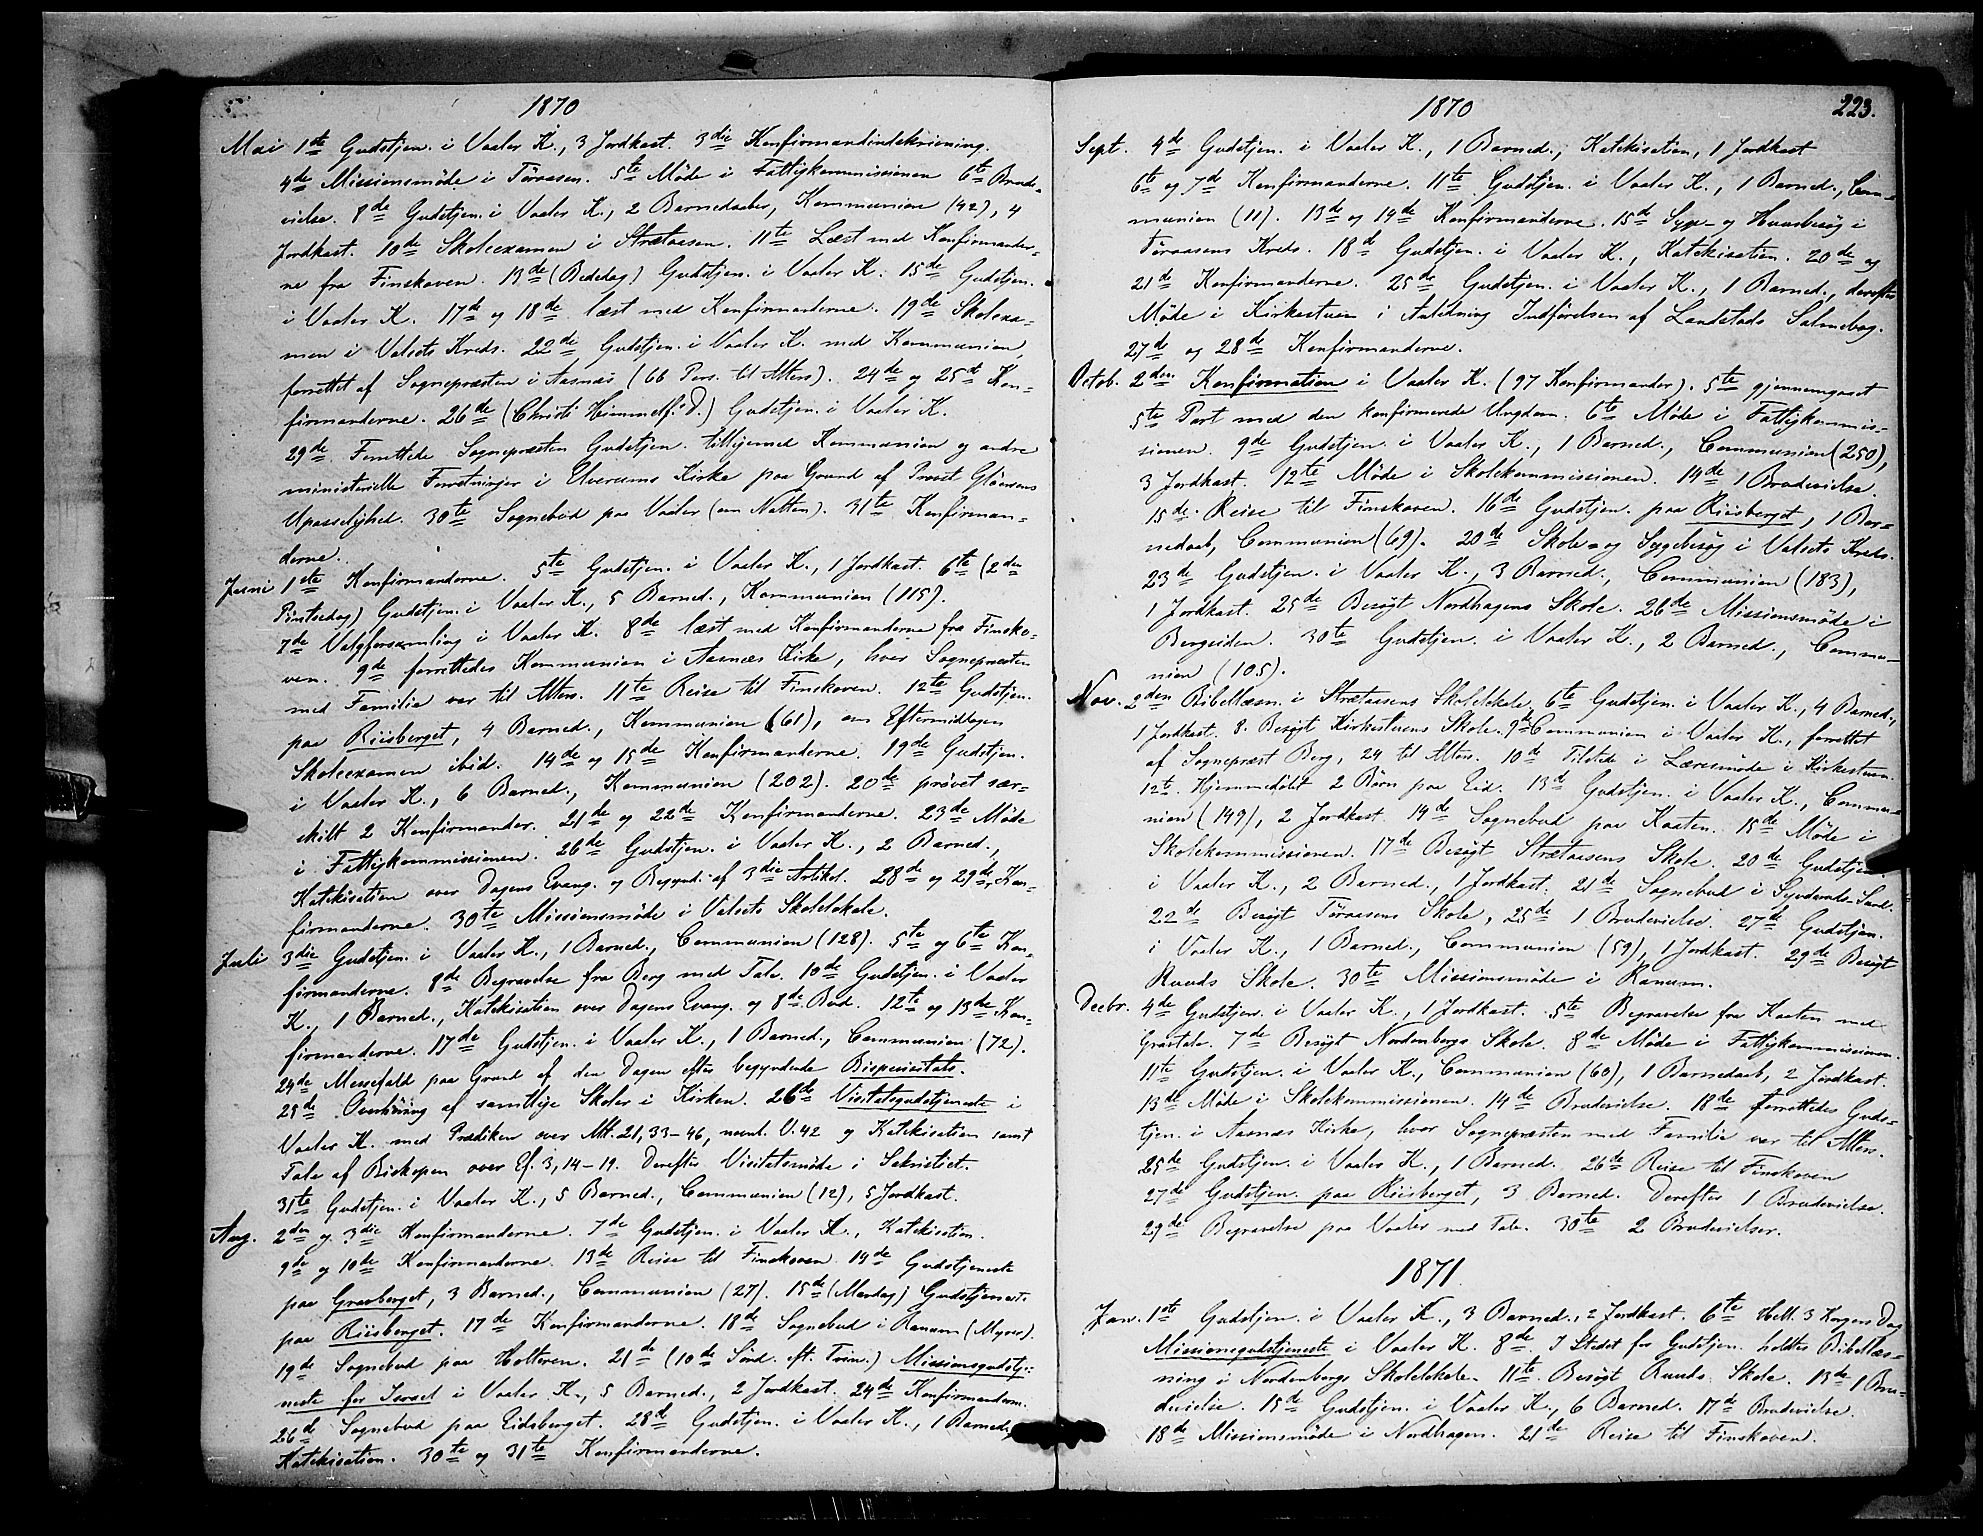 1870
Mai 1ste Gudstjen. i Vaaler K., 3 Jordkast. 3die Konfirmandindskrivning.
4de Missionsmøde i Töraasen. 5te Møde i Fattigkommissionen 6te Brude-
vielse. 8de Gudstjen. i Vaaler K., 2 Barnedaaber, Kommunion (42), 4
Jordkast. 10de Skoleexamen i Strætaasen. 11te Læst med Konfirmander-
ne fra Finskoven. 13de (Bededag) Gudstjen. i Vaaler K. 15de Gudstjen.
i Vaaler K. 17de og 18de læst med Konfirmanderne. 19de Skoleexa-
men i Valsets Kreds. 22de Gudstjen. i Vaaler K. med Kommunion,
forrettet af Sognepræsten i Aasnæs (66 Pers. til Alters). 24de og 25de Kon-
firmanderne. 26de (Christi Himmelf. D.) Gudstjen. i Vaaler K.
29de Forrettede Sognepræsten Gudstjen. tilligemed Kommunion og andre
ministerielle Forretninger i Elverums Kirke paa Grund af Provst Gløersens
Upasselighed. 30te Sognebud paa Vaaler (om Natten). 31te Konfirman-
derne.
Juni 1ste Konfirmanderne. 5te Gudstjen. i Vaaler K., 1 Jordkast. 6te (2den
Pintsedag) Gudstjen. i Vaaler K., 5 Barned., Kommunion (115).
7de Valgforsamling i Vaaler K. 8de læst med Konfirmanderne fra Finsko-
ven. 9de forrettedes Kommunion i Aasnæs Kirke, hvor Sognepræsten
med Familie var til Alters. 11te Reise til Finskoven. 12te Gudstjen.
paa Riisberget, 4 Barned., Kommunion (61), om Eftermiddagen
Skoleexamen ibid. 14de og 15de Konfirmanderne. 19de Gudstjen.
i Vaaler K., 6 Barned., Kommunion (202). 20de prøvet sær-
skilt 2 Konfirmander. 21de og 22de Konfirmanderne. 23de Møde
i Fattigkommissionen. 26de Gudstjen. i Vaaler K., 2 Barned.,
Katekisation over Dagens Evang. og Begynd. af 3die Artikel. 28de og 29de Kon-
firmanderne. 30te Missionsmøde i Valsets Skolelokale.
Juli 3die Gudstjen. i Vaaler K., 1 Barned., Communion (128). 5te og 6te Kon-
firmanderne. 8de Begravelse fra Berg med Tale. 10de Gudstjen. i Vaaler
K., 1 Barned., Katekisation over Dagens Evang. og 8de Bud. 12te og 13de Kon-
firmanderne. 17de Gudstjen. i Vaaler K., 1 Barned., Communion (72).
24de Messefald paa Grund af den Dagen efter begyndende Bispevisitats.
25de Overhøring af samtlige Skoler i Kirken. 26de Visitatsgudstjeneste i
Vaaler K. med Prædiken over Mt. 21, 33-46, navnl. V. 42 og Katekisation samt
Tale af Biskopen over Ef. 3, 14-19. Derefter Visitatsmøde i Sakristiet.
31te Gudstjen. i Vaaler K., 5 Barned., Communion (12), 5 Jordkast.
Aug. 2den og 3die Konfirmanderne. 7de Gudstjen. i Vaaler K., Katekisation.
9de og 10de Konfirmanderne. 13de Reise til Finskoven. 14de Gudstjeneste
paa Gravberget, 3 Barned., Communion (27). 15de (Mandag) Gudstjeneste
paa Riisberget. 17de Konfirmanderne. 18de Sognebud i Ranum (Myrer).
19de Sognebud paa Holteren. 21de (10de Sönd. eft. Trin.) Missionsgudstje-
neste for Israel i Vaaler K., 5 Barned., 2 Jordkast. 24de Konfirmandern.
26de Sognebud paa Eidsberget. 28de Gudstjen. i Vaaler K., 1 Barned.,
Katekisation. 30te og 31te Konfirmanderne.
1870 223.
Sept. 4de Gudstjen. i Vaaler K., 1 Barned., Katekisation, 1 Jordkast
6te og 7de Konfirmanderne. 11te Gudstjen. i Vaaler K., 1 Barned., Com-
munion (11). 13de og 14de Konfirmanderne. 15de Syge- og Huusbesøg i
Töraasens Kreds. 18de Gudstjen. i Vaaler K., Katekisation. 20de og
21de Konfirmanderne. 25de Gudstjen. i Vaaler K., 1 Barned., derefter
Møde i Kirkestuen i Anledning Indførelsen af Landstads Salmebog.
27de og 28de Konfirmanderne.
Octob. 2den Konfirmation i Vaaler K. (97 Konfirmander). 5te gjennemgaaet
5te Part med den konfirmerede Ungdom. 6te Møde i Fattigkommis-
sionen. 9de Gudstjen. i Vaaler K., 1 Barned., Communion (250),
3 Jordkast. 12te Møde i Skolekommissionen. 14de 1 Brudevielse.
15de Reise til Finskoven. 16de Gudstjen. paa Riisberget, 1 Bar-
nedaab, Communion (69). 20de Skole- og Sygebesøg i Valsets Kreds.
23de Gudstjen. i Vaaler K., 3 Barned., Communion (183),
1 Jordkast. 25de Besøgt Nordhagens Skole. 26de Missionsmøde i
Bergesiden. 30te Gudstjen. i Vaaler K., 2 Barned., Commu-
nion (105).
Nov. 2den Bibellæsn. i Strætaasens Skolelokale, 6te Gudstjen. i Vaaler K., 4 Barned.,
1 Jordkast. 8. Besøgt Kirkestuens Skole. 9de Communion i Vaaler K., forrettet
af Sognepræst Berg, 24 til Alters. 10de Tilstede i Læremøde i Kirkestuen.
12te Hjemmedøbt 2 Børn paa Eid. 13de Gudstjen. i Vaaler K., Commu-
nion (149), 2 Jordkast. 14de Sognebud paa Kaaten. 15de Møde i
Skolekommissionen. 17de Besøgt Strætaasens Skole. 20de Gudstjen.
i Vaaler K., 2 Barned., 1 Jordkast. 21de Sognebud i
22de Besøgt Töraasens Skole, 25de 1 Brudevielse. 27de Gudstjen.
i Vaaler K., 1 Barned., Communion (59), 1 Jordkast. 29de Besøgt
Ruuds Skole. 30te Missionsmøde i Ranum.
Decbr. 4de Gudstjen. i Vaaler K., 1 Jordkast. 5te Begravelse fra Kaaten med
Gravtale. 7de Besøgt Nordenbergs Skole. 8de Møde i Fattigkommissionen.
11te Gudstjen. i Vaaler K., Communion (60), 1 Barnedaab, 2 Jordkast.
13de Møde i Skolekommissionen. 14de Brudevielse. 18de forrettedes Guds-
tjen. i Aasnæs Kirke, hvor Sognepræsten med Familie var til Alters.
25de Gudstjen. i Vaaler K., 1 Barned. 26de Reise til Finskoven
27de Gudstjen. paa Riisberget, 3 Barned. Derefter 1 Brudevielse.
29de Begravelse paa Vaaler med Tale. 30te 2 Brudevielser.
1871.
Jan. 1ste Gudstjen. i Vaaler K., 3 Barned., 2 Jordkast. 6te Hell. 3 Kongers Dag
Missionsgudstjeneste i Vaaler K. 8de I Stedet for Gudstjen. holdtes Bibellæs-
ning i Nordenbergs Skolelokale. 11te Besøgt Ruuds Skole. 13de 1 Bru-
devielse. 15de Gudstjen. i Vaaler K., 6 Barned. 17de Brudevielse.
18de Missionsmøde i Nordhagen. 21de Reise til Finskoven.